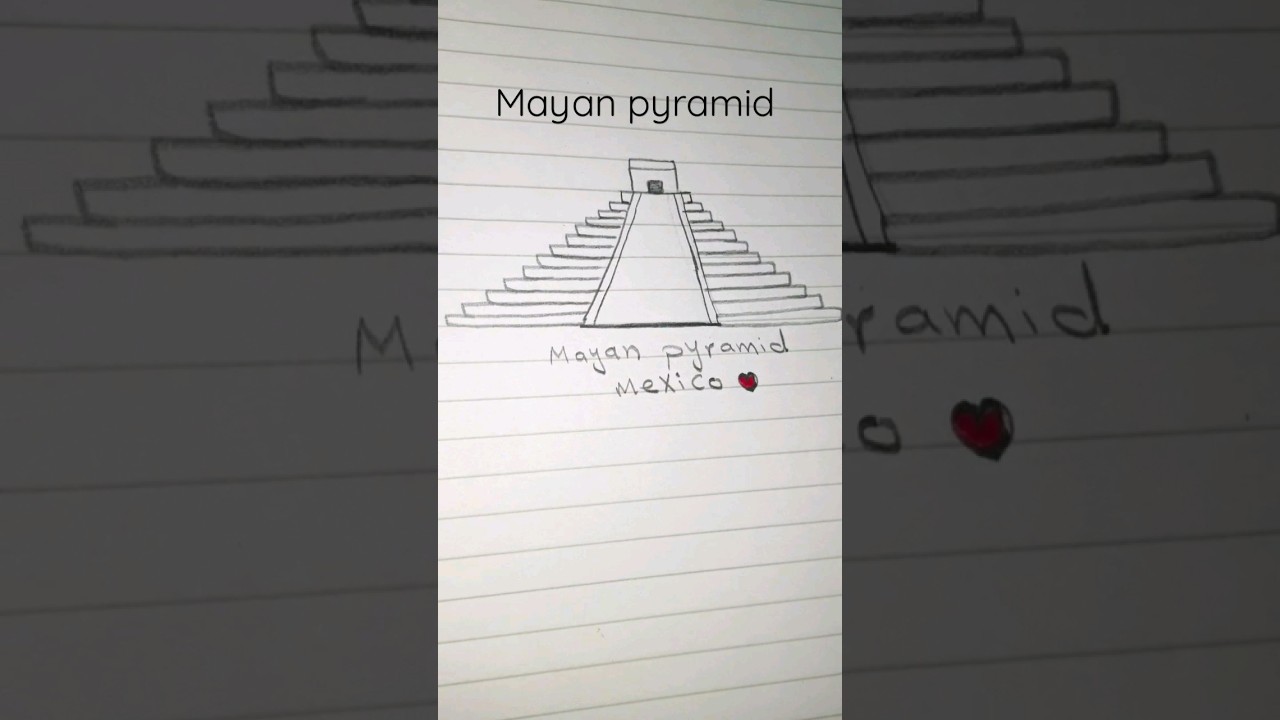 Mayan pyramid
Mayan pyramid
Mexico ❤